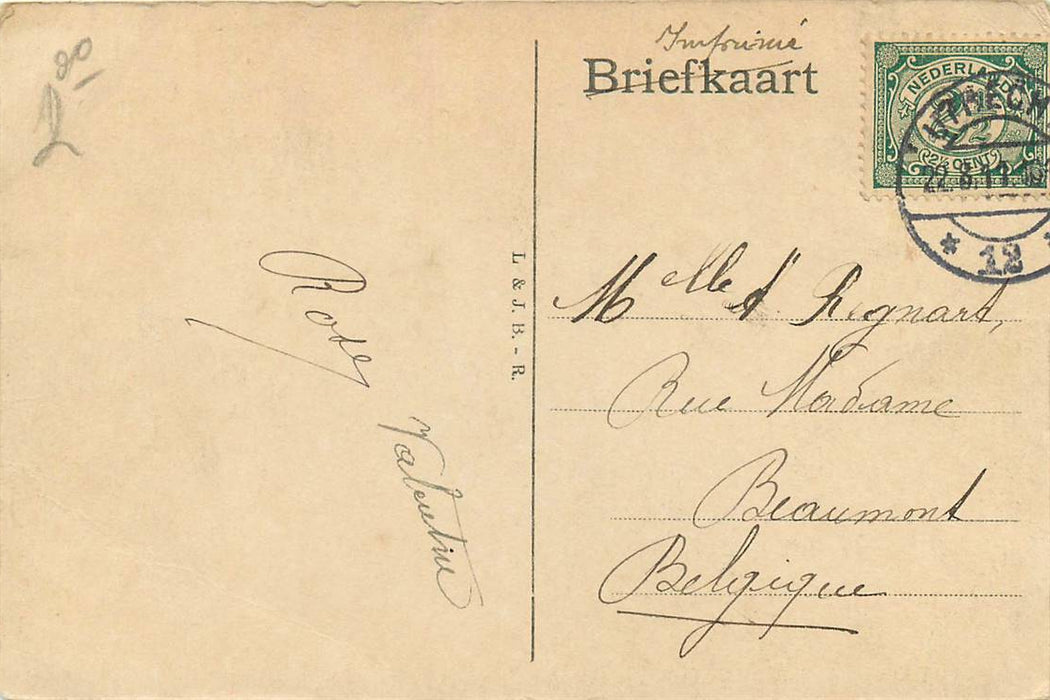 Imprimé
Briefkaart
NEDERLAND
2½ CENT
UTRECH
22.8.11
12
L & J. B. - R.
Rosey
Valentine
Melle A. Regnart,
Rue Madame
Beaumont
Belgique